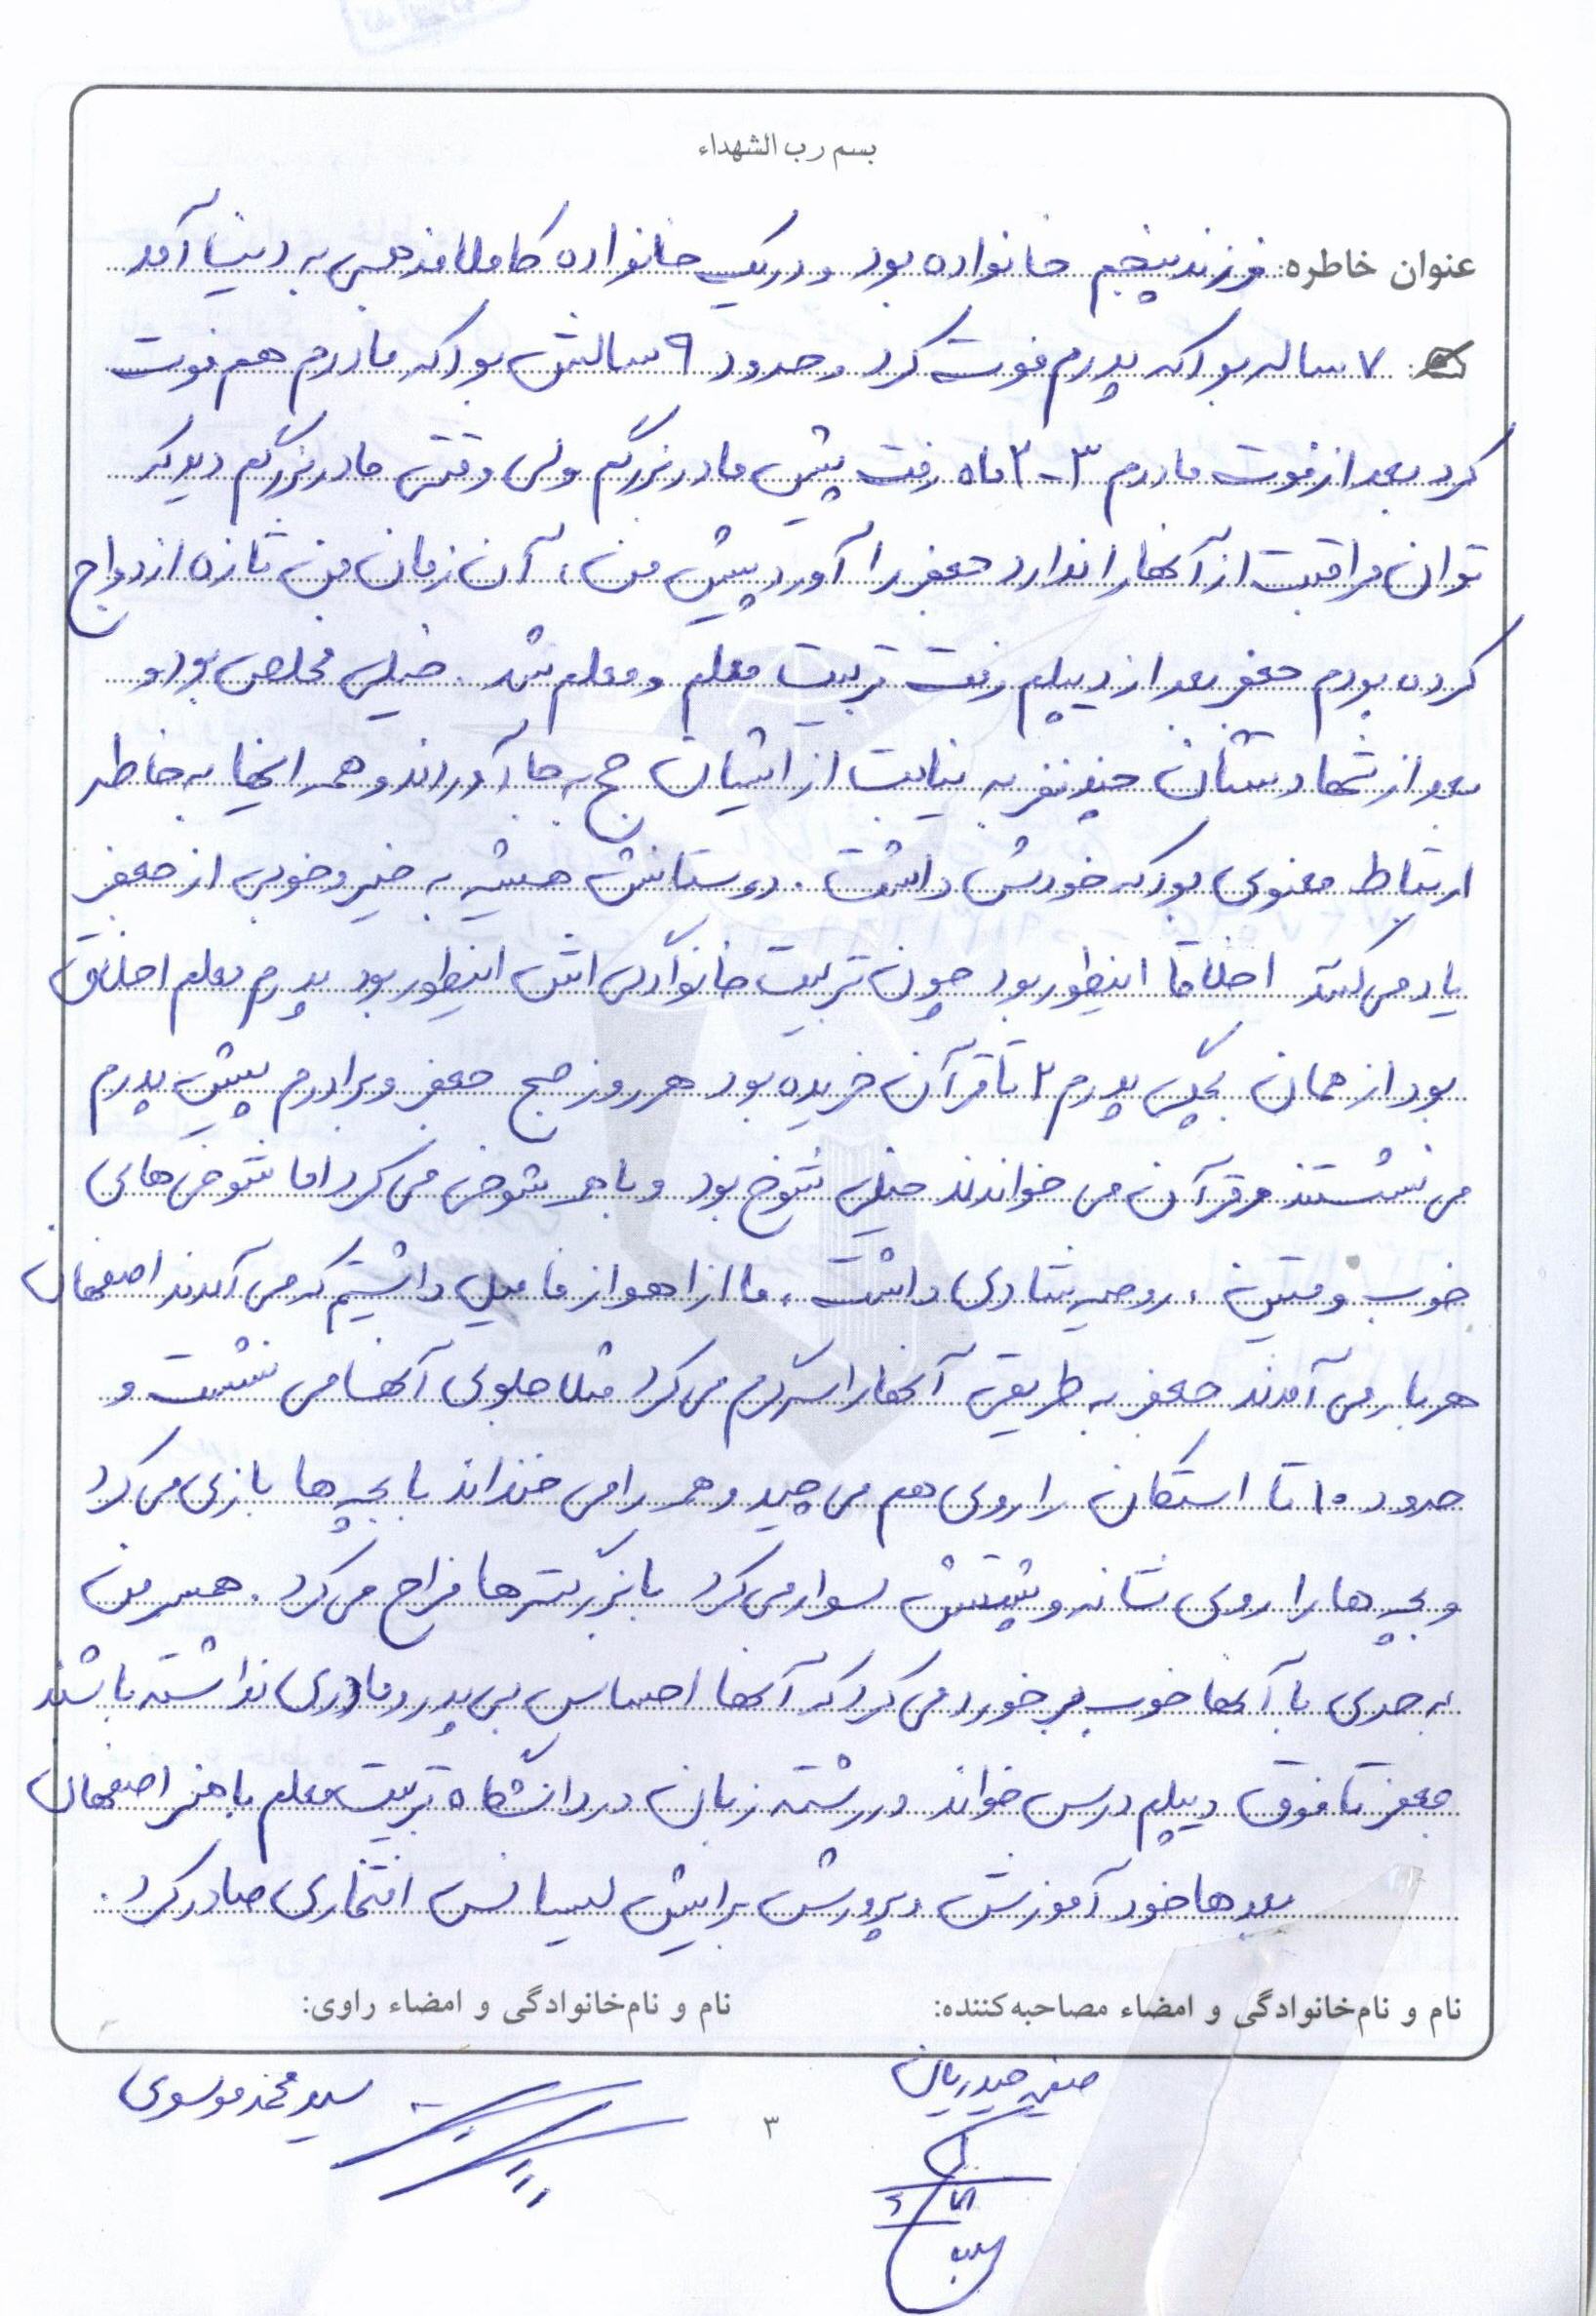 بسم رب الشهداء
عنوان خاطره: فرزند پنجم خانواده بود و در یک خانواده کاملا مذهبی به دنیا آمد
۷ ساله بود که پدرم فوت کرد و حدود ۹ سالش بود که مادرم هم فوت
کرد بعد از فوت مادرم ۳-۲ ماه رفت پیش مادربزرگم ولی وقتی مادربزرگم دید که
توان مراقبت از آنها را ندارد جعفر را آورد پیش من، آن زمان من تازه ازدواج
کرده بودم جعفر بعد از دیپلم رفت تربیت معلم و معلم شد. خیلی مخلص بود و
بعد از شهادتشان چند نفر به نیابت از ایشان حج به جا آوردند و همه اینها به خاطر
ارتباط معنوی بود که خودش داشت. دوستانش همیشه به خیر و خوبی از جعفر
یاد می کنند اخلاقا اینطور بود چون تربیت خانوادگی اش اینطور بود پدرم معلم اخلاق
بود از همان بچگی پدرم ۲ تا قرآن خریده بود هر روز صبح جعفر و برادرم پیش پدرم
می نشستند و قرآن می خواندند خیلی شوخ بود و با همه شوخی می کرد اما شوخی های
خوب و متین، روحیه شادی داشت، ما از اهواز فامیل داشتیم که می آمدند اصفهان
هر بار می آمدند جعفر به طریقی آنها را سرگرم می کرد مثلا جلوی آنها می نشست و
حدود ۱۰ تا استکان را روی هم می چید و همه را می خنداند با بچه ها بازی می کرد
و بچه ها را روی شانه و پشتش سوار می کرد با بزرگترها مزاح می کرد. همسر من
به حدی با آنها خوب برخورد می کرد که آنها احساس بی پدر و مادری نداشته باشند
جعفر تا فوق دیپلم درس خواند در رشته زبان در دانشگاه تربیت معلم باهنر اصفهان
بعدها خود آموزش و پرورش برایش لیسانس افتخاری صادر کرد.
نام و نام‌خانوادگی و امضاء مصاحبه‌کننده: نام و نام‌خانوادگی و امضاء راوی:
حیدریان سید محمد موسوی
۳